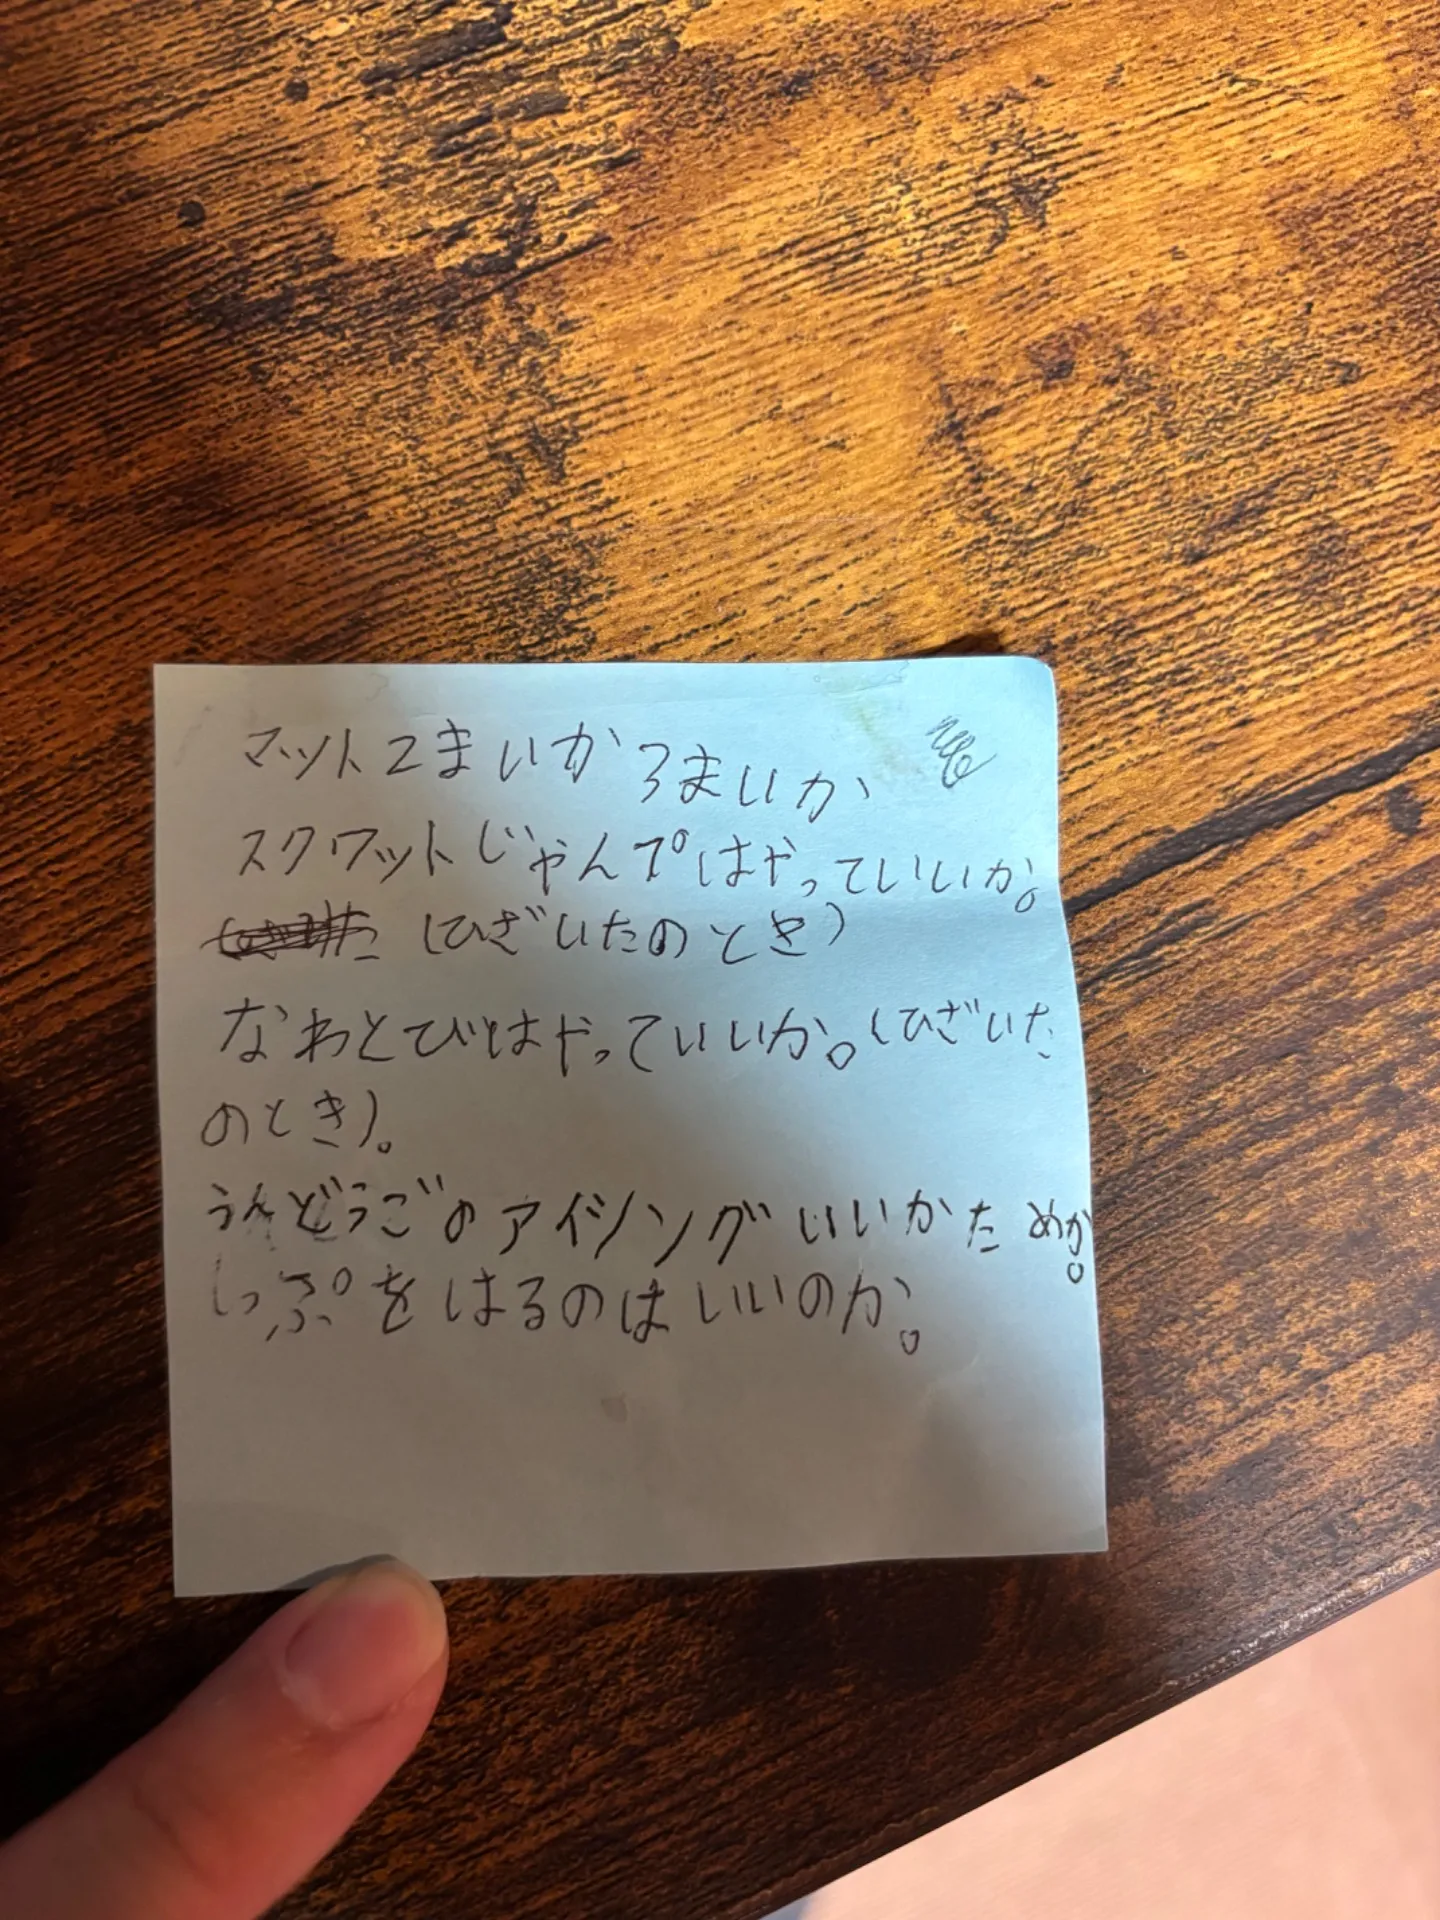 マット2まいか3まいか
スクワットじゃんプはやっていいか。
(ひざいたのとき)
なわとびはやっていいか。(ひざいた
のとき)。
うんどうごのアイシングいいかためか。
しっぷをはるのはいいのか。